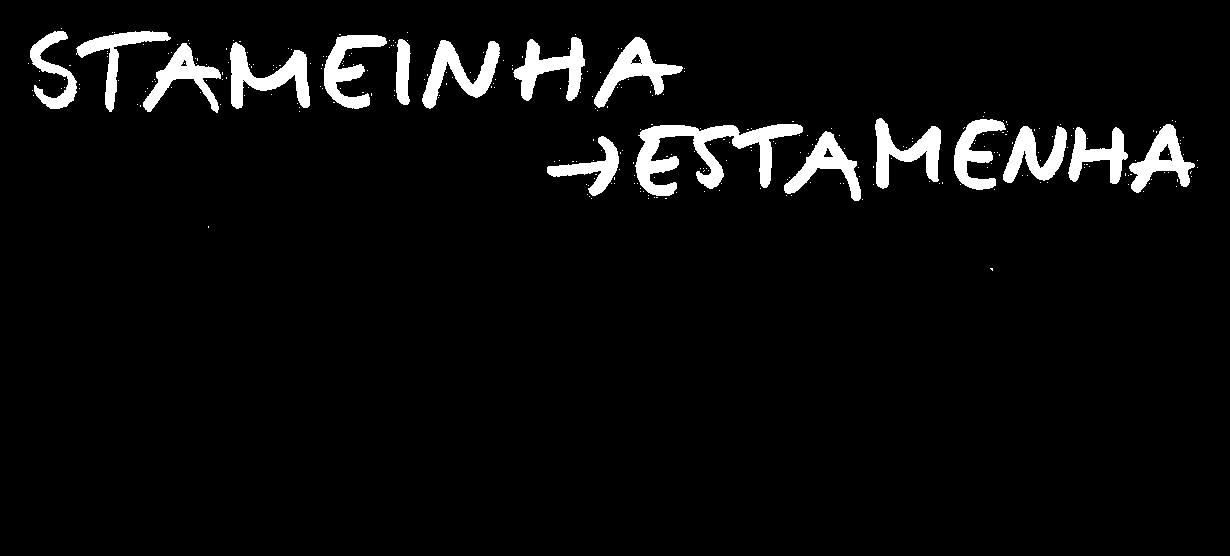 STAMEINHA
→ESTAMENHA